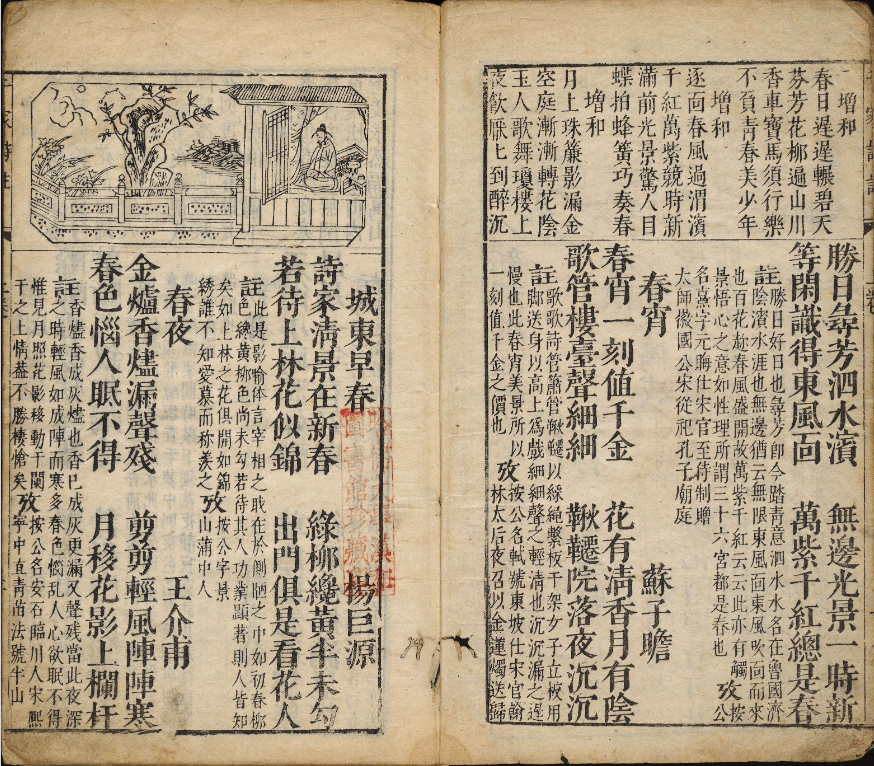 增和
春日遲遲輾碧天
芬芳花柳遍山川
香車寶馬須行樂
不負青春美少年
增和
逐面春風過渭濱
千紅萬紫競時新
滿前光景驚人目
蝶拍蜂簧巧奏春
增和
月上珠簾影漏金
空庭漸漸轉花陰
玉人歌舞瓊樓上
夜飲厭厭到醉沉
勝日尋芳泗水濱 無邊光景一時新
等閑識得東風面 萬紫千紅總是春
註勝日好日也尋芳即今踏青意泗水水名在魯國濟
陰濱水涯也無邊猶云無限東風面東風吹面而來
也百花趁春風盛開故萬紫千紅云云此亦有觸
景悟心之意如性理所謂三十六宮都是春也 攷公
名熹字元晦仕宋官至待制贈
太師徽國公宋從祀孔子廟庭
春宵 蘇子瞻
春宵一刻值千金 花有清香月有陰
歌管樓臺聲細細 鞦韆院落夜沉沉
註歌歌詩管簫管鞦韆以綵繩繫板干架女子立板用
脚送身以高上爲戲細細聲之輕清也沉沉漏之遲
慢也此春宵美景所以 攷按公名軾號東坡仕宋官翰
一刻值千金之價也 林太后夜召以金蓮燭送歸
城東早春 楊巨源
詩家清景在新春 綠柳纔黃半未勻
若待上林花似錦 出門俱是看花人
註此是影喻体言宰相之戝在於側陋之中如初春柳
色纔黃柳色尚未勻若待其人功業顯著則人皆知
矣如上林之花俱開如錦 攷按公字景
綉誰不知愛慕而称羨之 山蒲中人
春夜 王介甫
金爐香燼漏聲殘 剪剪輕風陣陣寒
春色惱人眠不得 月移花影上欄杆
註香燼香成灰燼也香巳成灰更漏又聲残當此夜深
之時輕風如成陣而寒多春色惱乱人心欲眠不得
惟見月照花影移動于闌 攷按公名安石臨川人宋熙
干之上情益不勝棲愴矣 寧中直青苗法號半山